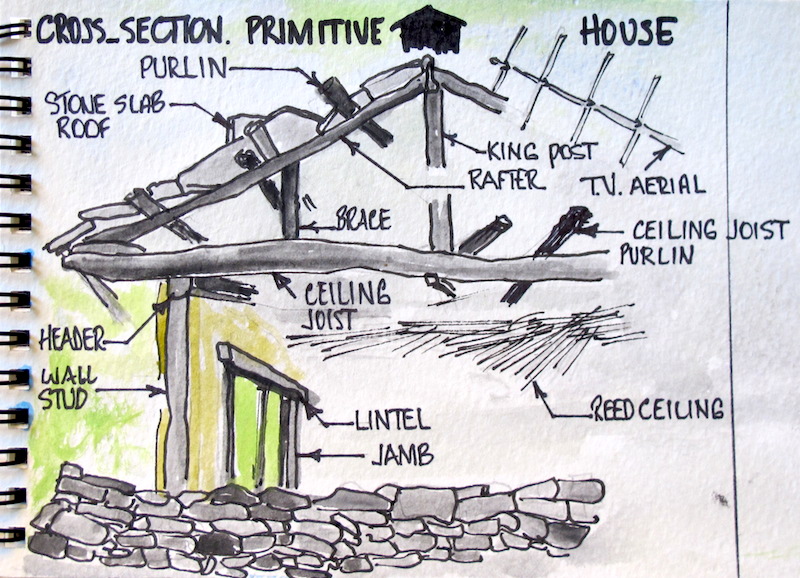 CROSS_SECTION. PRIMITIVE HOUSE
PURLIN
STONE SLAB
ROOF
KING POST
RAFTER
T.V. AERIAL
BRACE
CEILING JOIST
PURLIN
CEILING
JOIST
HEADER
WALL
STUD
REED CEILING
LINTEL
JAMB